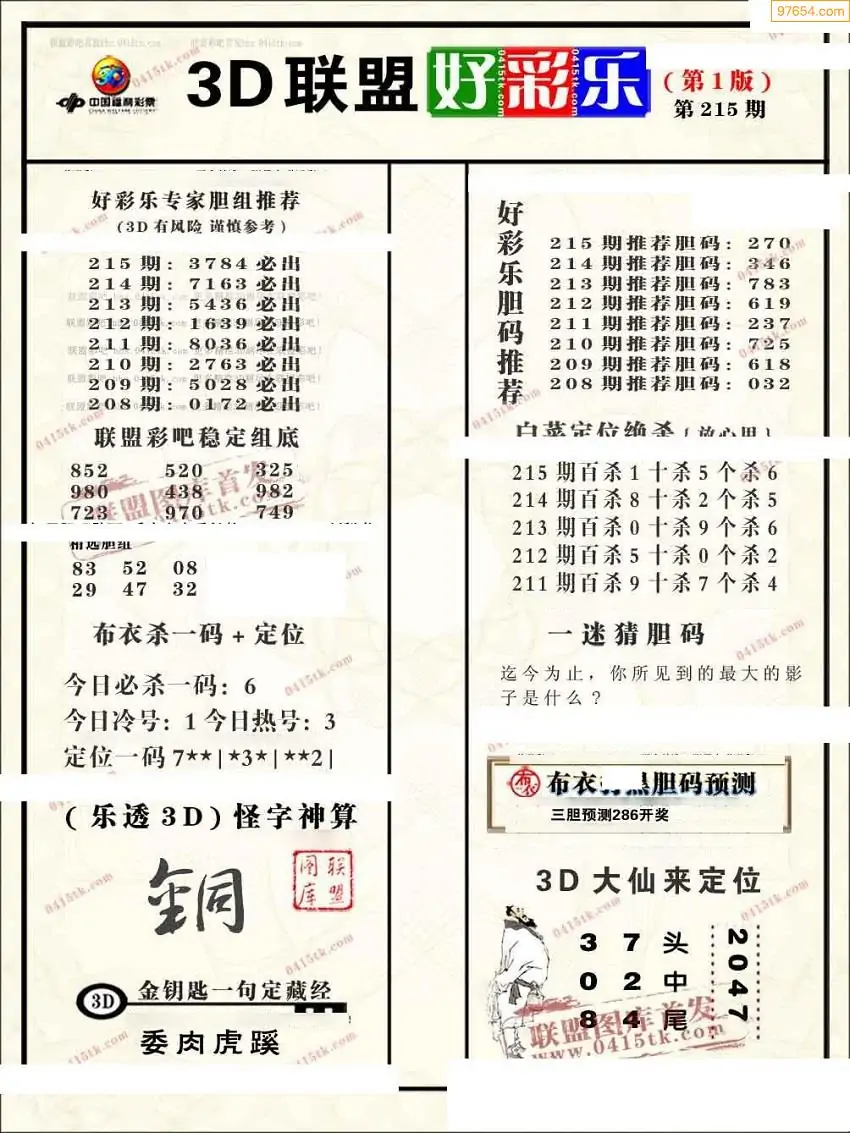 97654.com
中国福利彩票
CHINA WELFARE LOTTERY
3D联盟好彩乐
(第1版)
第215期
好彩乐专家胆组推荐
(3D有风险 谨慎参考)
215期:3784必出
214期:7163必出
213期:5436必出
212期:1639必出
211期:8036必出
210期:2763必出
209期:5028必出
208期:0172必出
联盟彩吧稳定组底
852 520 325
980 438 982
723 970 749
精选胆组
83 52 08
29 47 32
布衣杀一码+定位
今日必杀一码:6
今日冷号:1今日热号:3
定位一码7**|*3*|**2|
(乐透3D)怪字神算
銅
联盟图库
3D
金钥匙一句定藏经
委肉虎蹊
好彩乐胆码推荐
215期推荐胆码:270
214期推荐胆码:346
213期推荐胆码:783
212期推荐胆码:619
211期推荐胆码:237
210期推荐胆码:725
209期推荐胆码:618
208期推荐胆码:032
白菜定位绝杀{放心用}
215期百杀1十杀5个杀6
214期百杀8十杀2个杀5
213期百杀0十杀9个杀6
212期百杀5十杀0个杀2
211期百杀9十杀7个杀4
一迷猜胆码
迄今为止,你所见到的最大的影
子是什么?
布衣
布衣 胆码预测
三胆预测286开奖
3D大仙来定位
3 7头
0 2中
8 4尾
2047
联盟图库首发
www.0415tk.com
联盟图库首发
0415tk.com